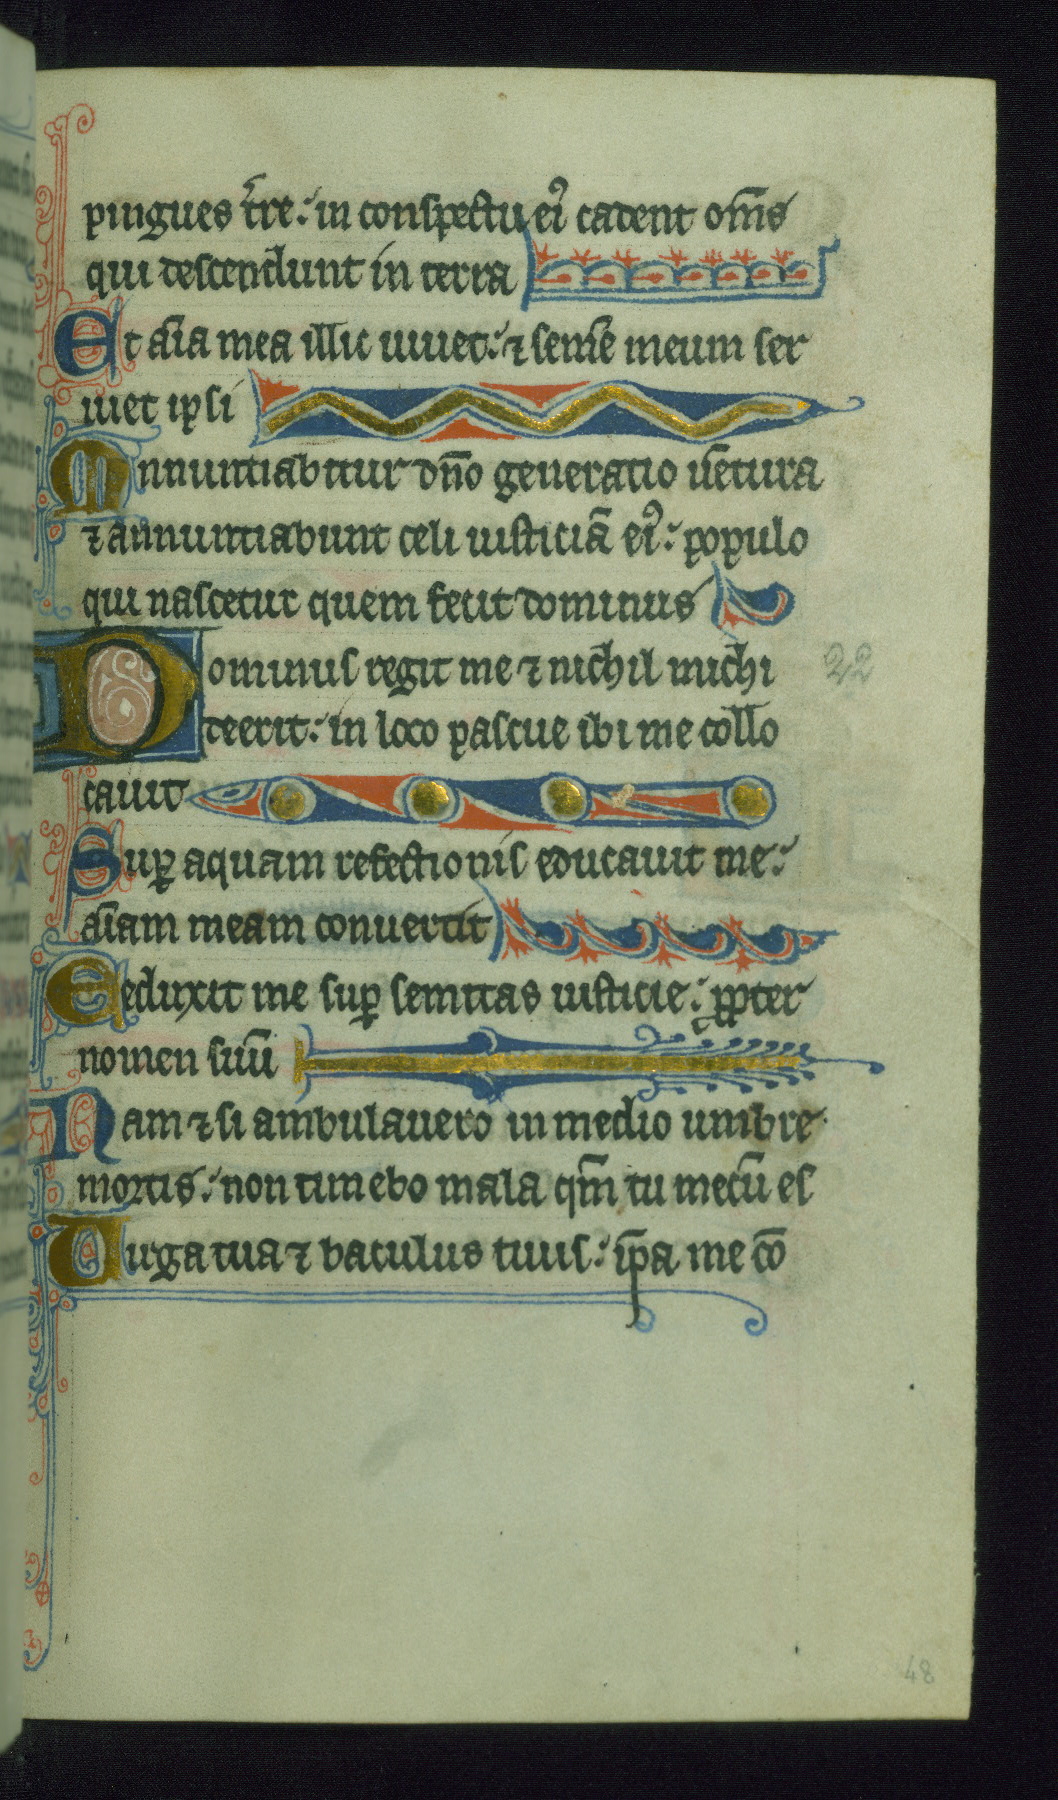 pingues t̄re: in conspectu ei᷒ cadent om̄s
qui descendunt in terra
Et aīa mea illic uiuet: ⁊ sem̄e meum ser
uiet ipsi
Annuntiabitur dn̄o generatio uētura
⁊ annuntiabunt celi iusticiā ei᷒: populo
qui nascetur quem fecit dominus
Dominus regit me ⁊ nichil michi 22
deerit: in loco pascue ibi me collo
cauit
Suꝑ aquam refectionis educauit me:
aīam meam conuertit
Deduxit me suꝑ semitas iusticie: ꝓpter
nomen suū
Nam ⁊ si ambulauero in medio umbre
mortis: non timebo mala qm̄ tu mecū es
Uirga tua ⁊ baculus tuus: ip̄a me cō
48